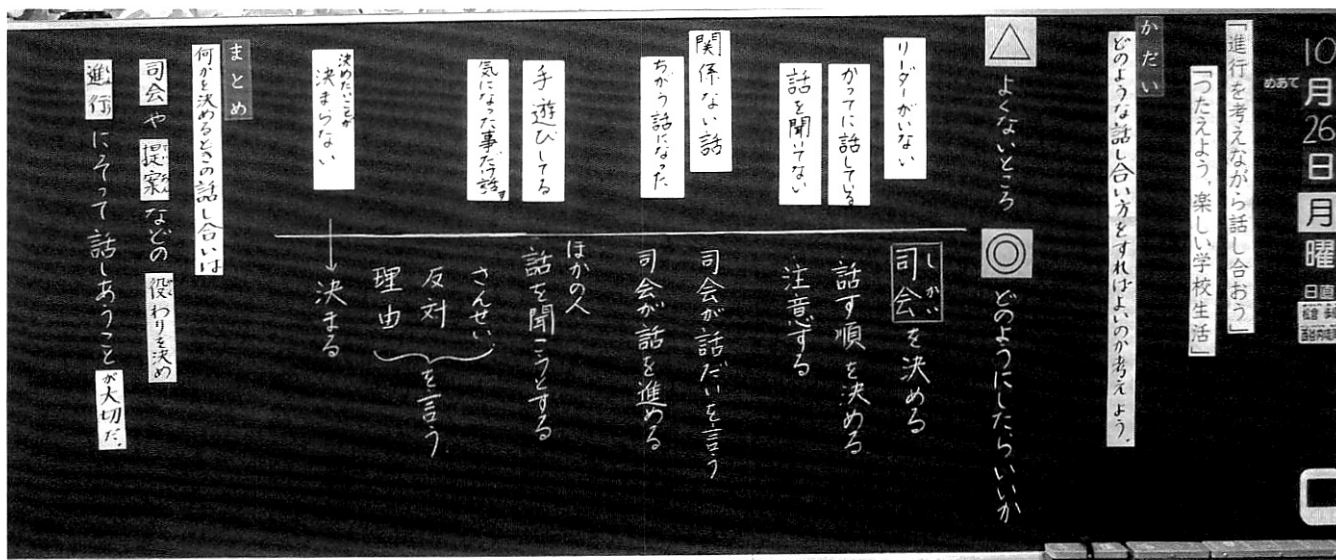 10月26日月曜
日直
めあて
「進行を考えながら話し合おう」
「つたえよう、楽しい学校生活」
かだい
どのような話し合い方をすればよいのか考えよう。
△ よくないところ
◎ どのようにしたらいいか
リーダーがいない
かってに話している
話を聞いてない
関係ない話
ちがう話になった
手遊びしてる
気になった事だけ話す
決めたいことが
決まらない
しかい
司会を決める
話す順を決める
注意する
司会が話だいを言う
司会が話を進める
ほかの人
話を聞こうとする
さんせい
反対
理由
を言う
→決まる
まとめ
何かを決めるときの話し合いは
司会や提案などの役わりを決め
進行にそって話しあうことが大切だ。